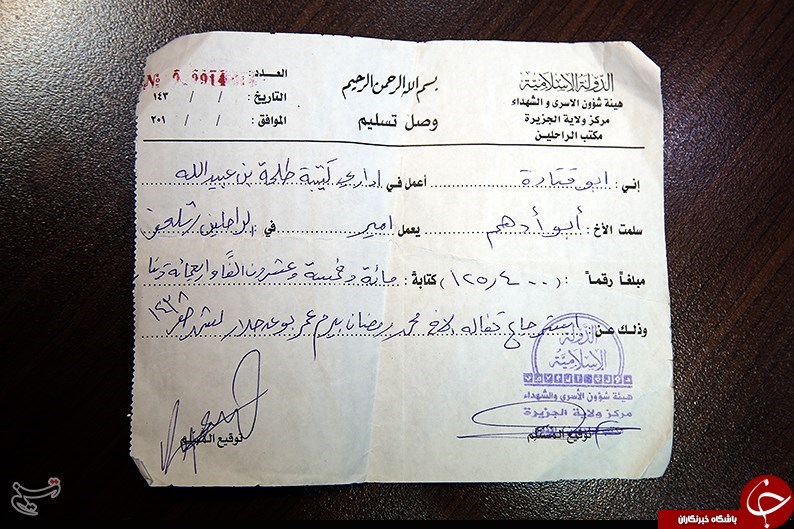 الدولة الإسلامية
هيئة شؤون الاسرى و الشهداء
مركز ولاية الجزيرة
مكتب الراحلين
بسم الله الرحمن الرحيم
وصل تسليم
العدد:
التاريخ: / / ١٤٣
الموافق: / / ٢٠١
إني: ابو قتادة أعمل في اداري كتيبة طلحة بن عبيدالله
سلمت الأخ: أبو أدهم يعمل امير في الراحلين
مبلغاً رقماً: (١٢٥٤٠٠) كتابة: مائة وخمسة وعشرون الفاً واربعمائة
وذلك عن: كفالة الاخ محمد رمضان لشهر صفر ١٤٣٨
الدولة
الإسلامية
هيئة شؤون الأسرى والشهداء
مركز ولاية الجزيرة
توقيع
توقيع
تسنيم
باشگاه خبرنگاران